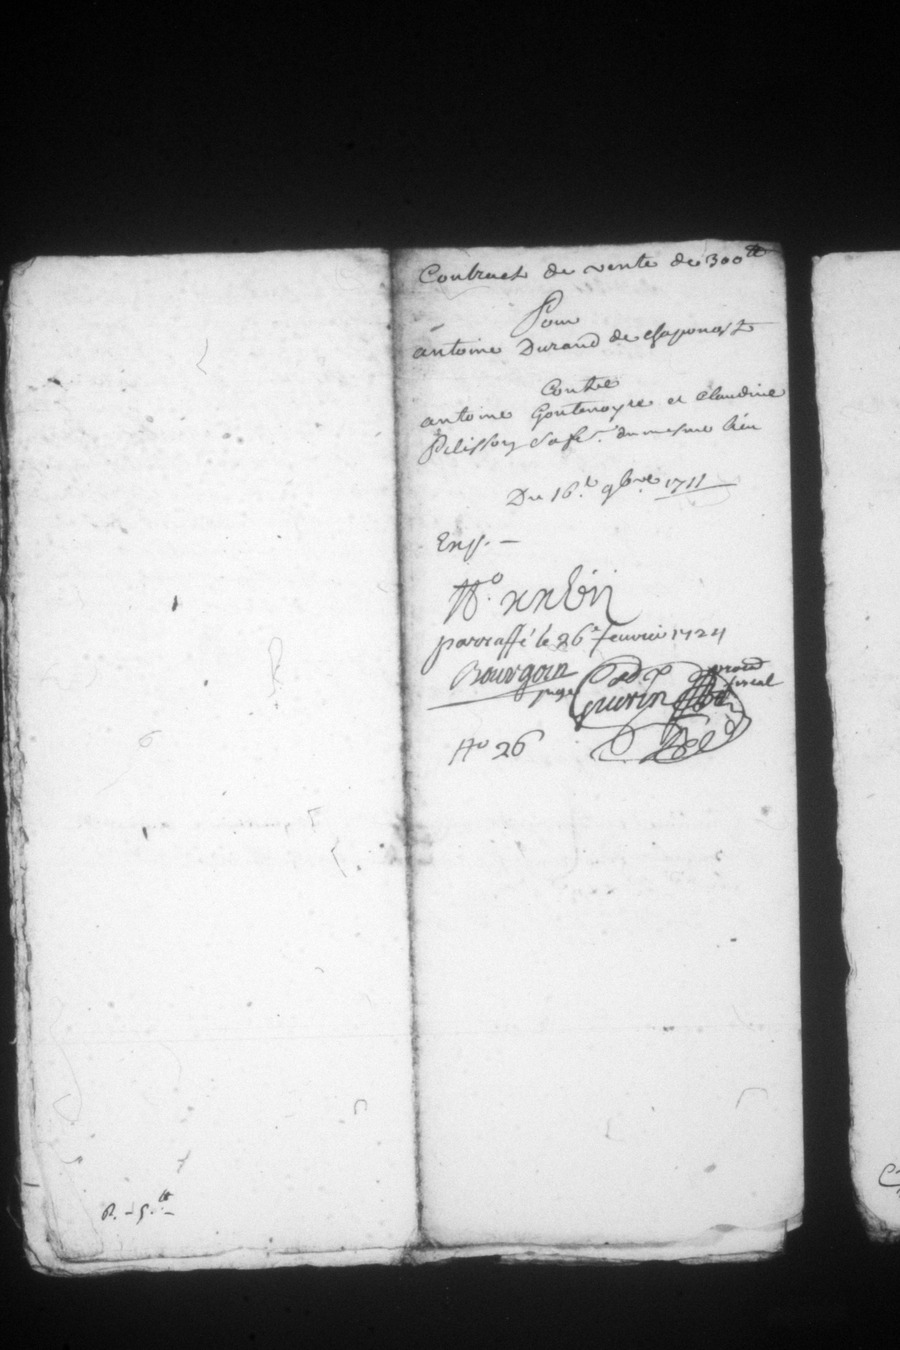 Contract de vente de 300 tt
Pour
antoine Durand de chaponost
Contre
antoine Goutenoyre et claudine
Pelisson sa fe. du mesme lieu
Du 16.e 9bre. 1711
No.
parraffé le 26e feuvrier 1724
Bourgoin
juge
Guerin
No 26
R. - 5.tt -